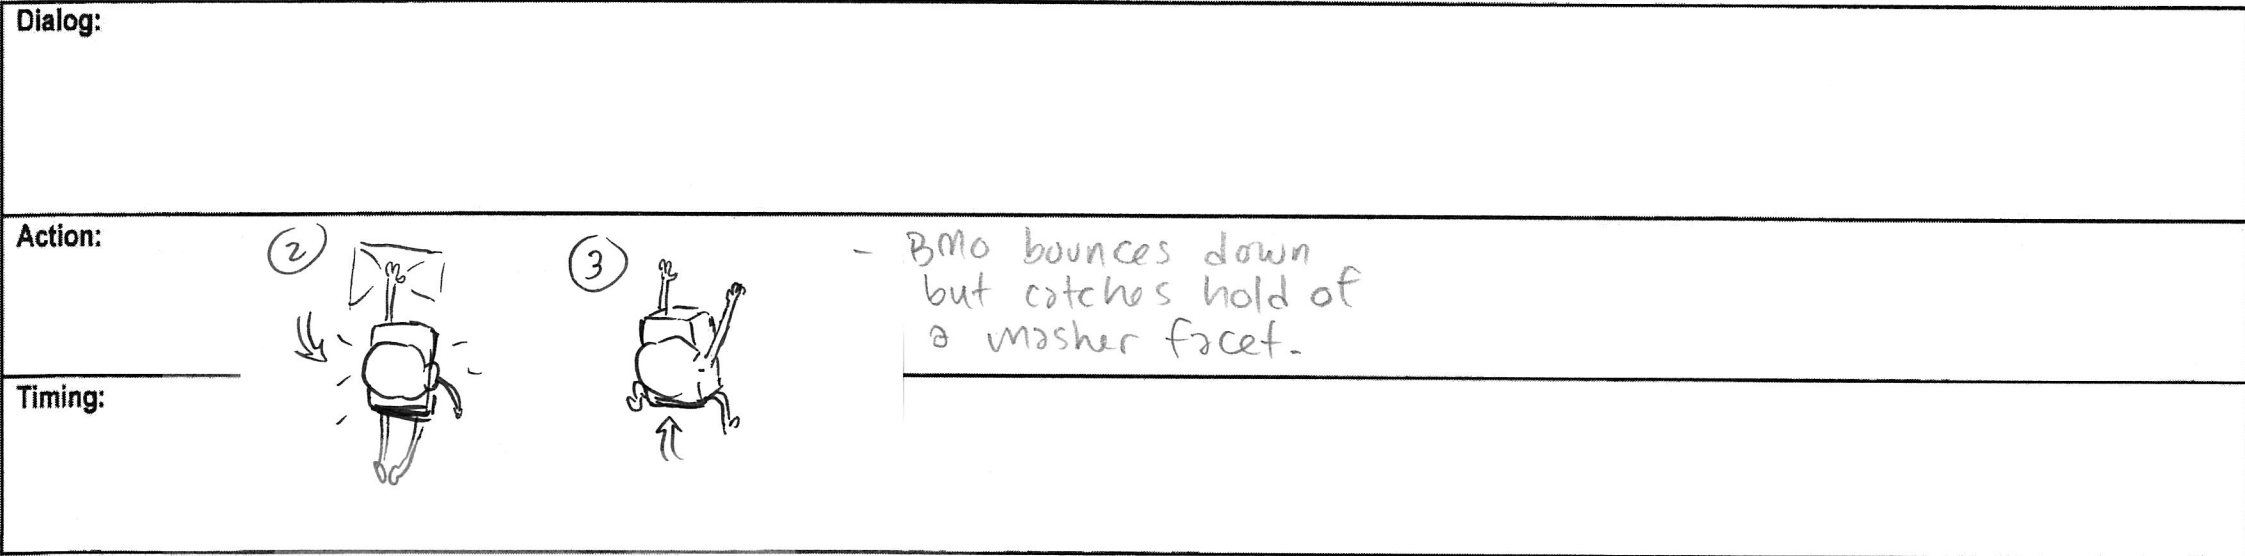 Dialog:
Action:
2
3
- BMO bounces down
but catches hold of
a masher facet.
Timing: